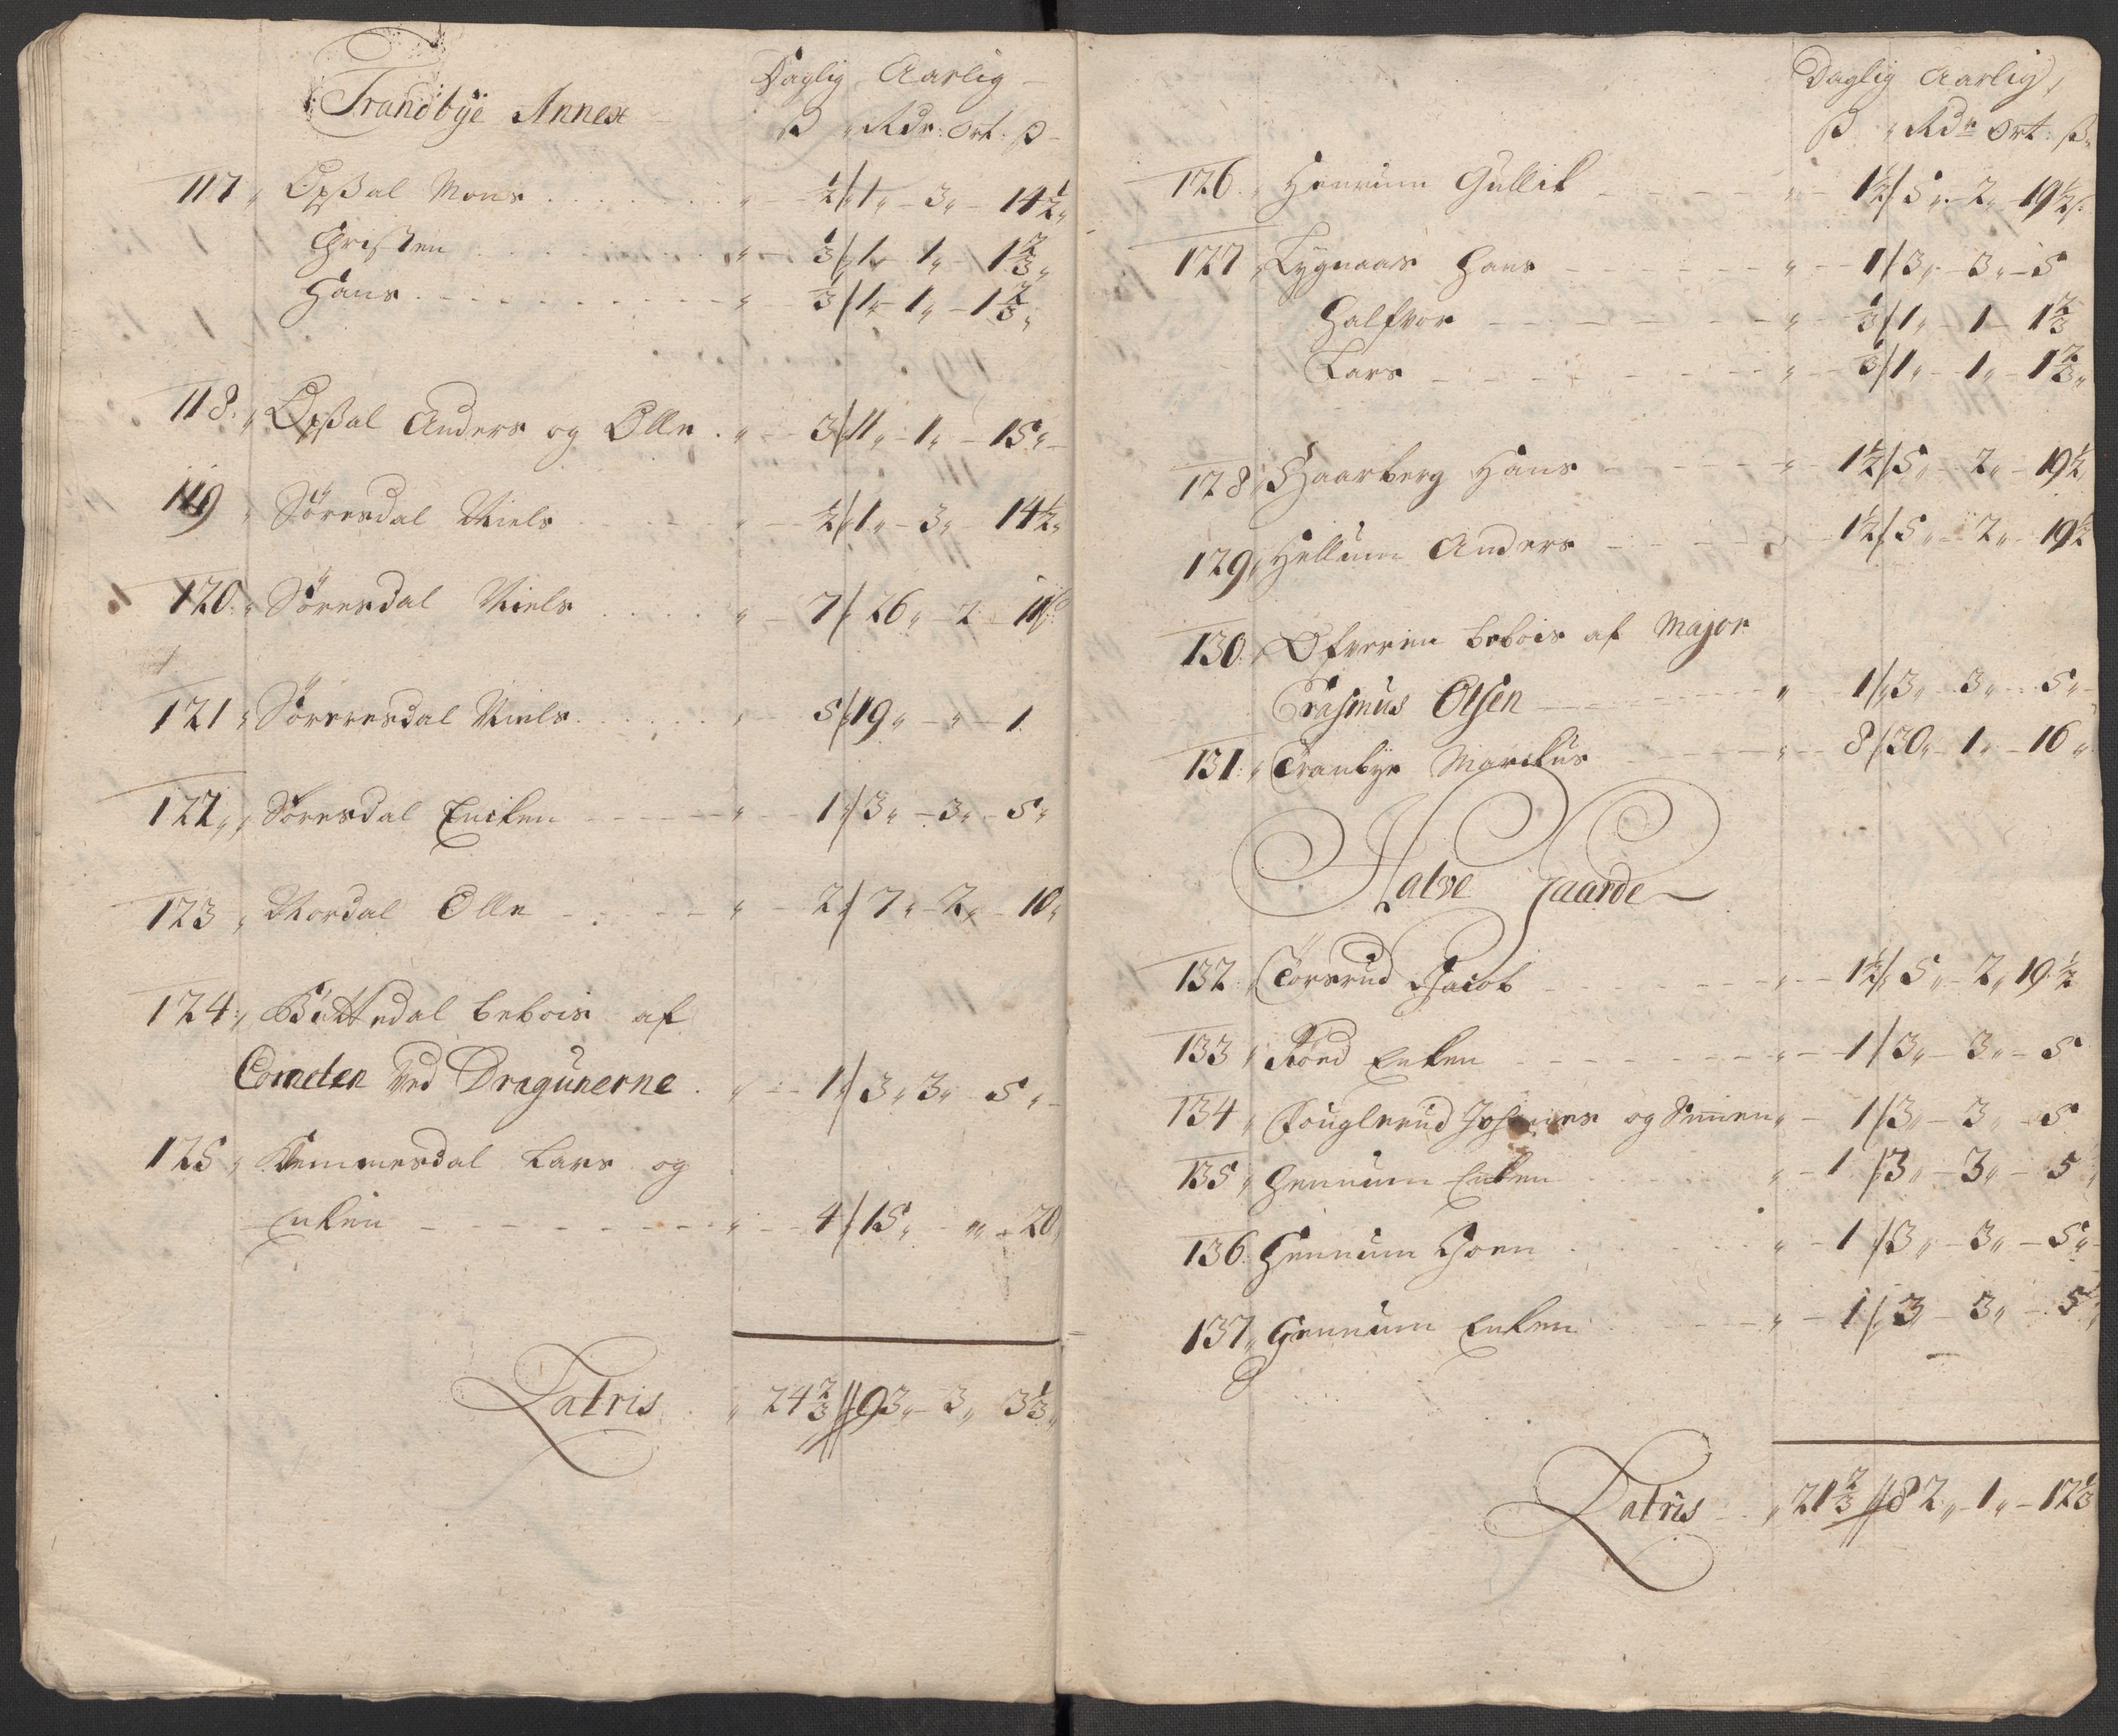 Trandbÿe Annex
Daglig Aarlig
ß Rdr: Ort: ß
117 Opßal Mons " ½ 1 " 3 " 14½
Christen " ⅓ 1 " 1 " 1⅔
Hans " ⅓ 1 " 1 " 1⅔
118 Opßal Anders og Olle " 3 11 " 1 " 15
119 Sörresdal Niels " ½ 1 " 3 " 14½
120 Sörresdal Niels " 7 26 " 2
121 Sörresdal Niels " 5 19 " " 1
122 Sörresdal Encken " 1 3 " 3 " 5
123 Nordal Olle " 2 7 " 2 " 10
124 bebois af
ved Dragunerne " 1 3 " 3 " 5
125 Kemmesdal Lars og
Enken " 4 15 " " 20
Latris " 24⅔ 93 " 3 " 3⅓
Daglig Aarlig
ß Rdr Ort: ß
126 Hennum Gullik " 1½ 5 " 2 " 19½
127 Lygnaas Hans " 1 3 " 3 " 5
Halfvor " ⅓ 1 " 1 " 1⅔
Lars " ⅓ 1 " 1 " 1⅔
128 Haarberg Hans " 1½ 5 " 2 " 19½
129 Hellum Anders " 1½ 5 " 2 " 19½
130 Øfveren bebois af Major
Erasmus Olsen " 1 3 " 3 " 5
131 Tranbye Marckus " 8 30 " 1 " 16
Halve Gaarde
132 Torsrud Jacob " 1½ 5 " 2 " 19½
133 Röed Enken " 1 3 " 3 " 5
134 Fouglerud Johannes og Simen " 1 3 " 3 " 5
135 Hennum Enken " 1 3 " 3 " 5
136 Hennum Joen " 1 3 " 3 " 5
137 Hennum Enken " 1 3 " 3 " 5
Latris " 21⅔ 82 " 1 " 12⅓